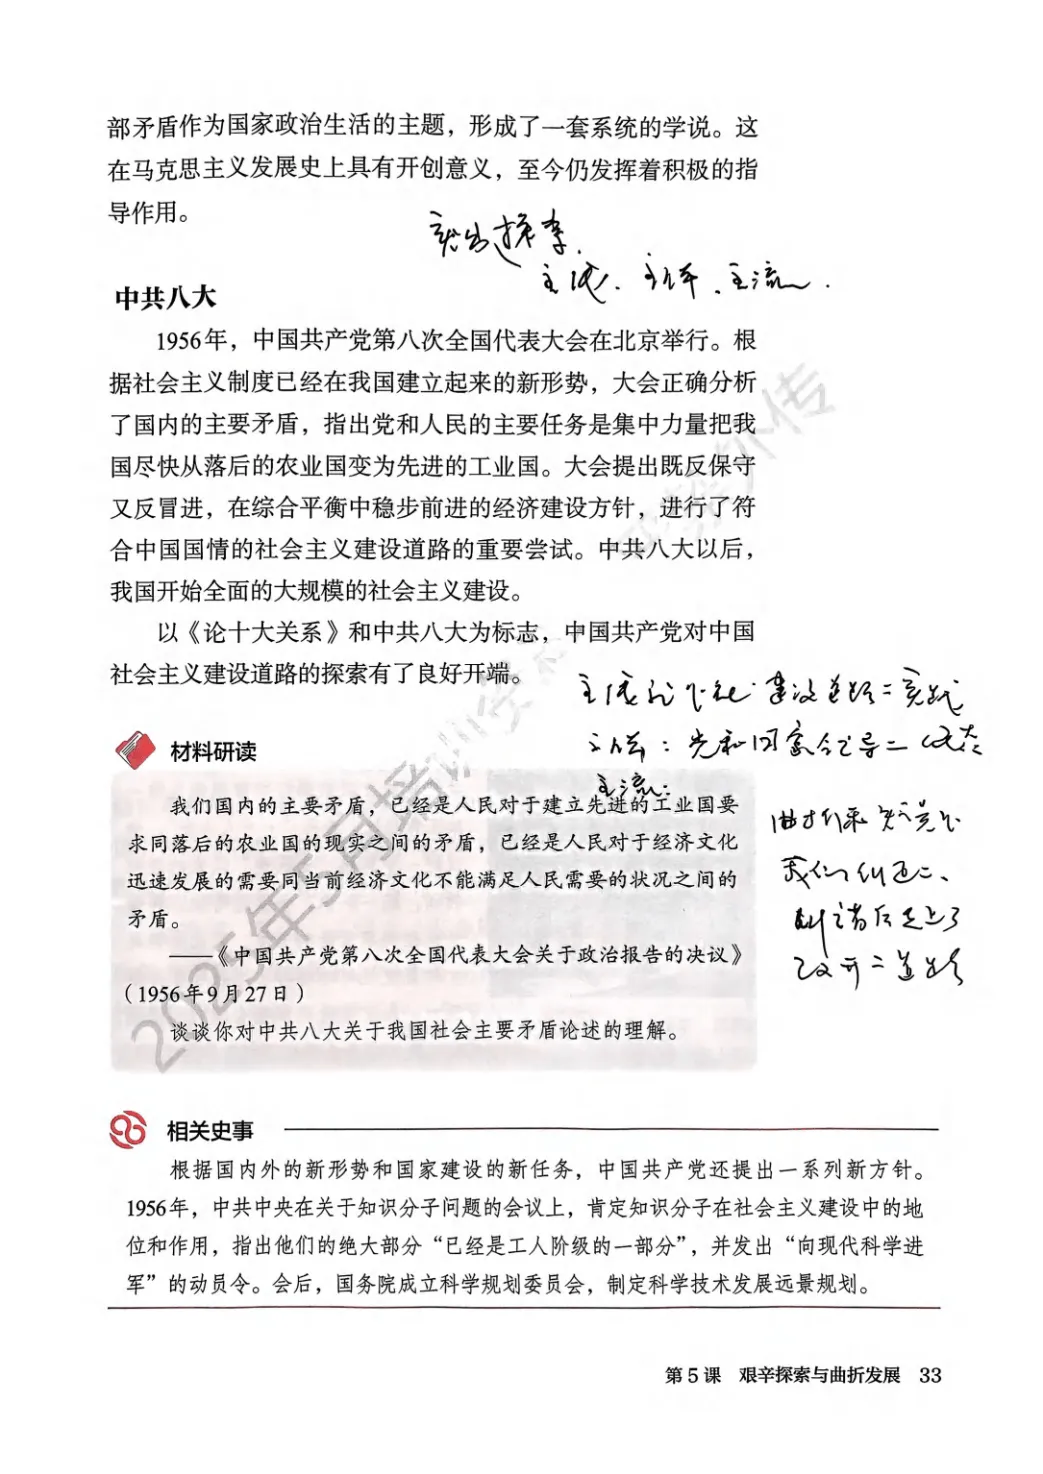 部矛盾作为国家政治生活的主题，形成了一套系统的学说。这
在马克思主义发展史上具有开创意义，至今仍发挥着积极的指
导作用。
主线、主体、主流.
中共八大
1956年，中国共产党第八次全国代表大会在北京举行。根
据社会主义制度已经在我国建立起来的新形势，大会正确分析
了国内的主要矛盾，指出党和人民的主要任务是集中力量把我
国尽快从落后的农业国变为先进的工业国。大会提出既反保守
又反冒进，在综合平衡中稳步前进的经济建设方针，进行了符
合中国国情的社会主义建设道路的重要尝试。中共八大以后，
我国开始全面的大规模的社会主义建设。
以《论十大关系》和中共八大为标志，中国共产党对中国
社会主义建设道路的探索有了良好开端。
建设道路
党和国家
主流：
材料研读
我们国内的主要矛盾，已经是人民对于建立先进的工业国要
求同落后的农业国的现实之间的矛盾，已经是人民对于经济文化
迅速发展的需要同当前经济文化不能满足人民需要的状况之间的
矛盾。
——《中国共产党第八次全国代表大会关于政治报告的决议》
（1956年9月27日）
谈谈你对中共八大关于我国社会主要矛盾论述的理解。
我们
走上了
改开之道路
2025年5月培训
外传
相关史事
根据国内外的新形势和国家建设的新任务，中国共产党还提出一系列新方针。
1956年，中共中央在关于知识分子问题的会议上，肯定知识分子在社会主义建设中的地
位和作用，指出他们的绝大部分“已经是工人阶级的一部分”，并发出“向现代科学进
军”的动员令。会后，国务院成立科学规划委员会，制定科学技术发展远景规划。
第5课 艰辛探索与曲折发展 33